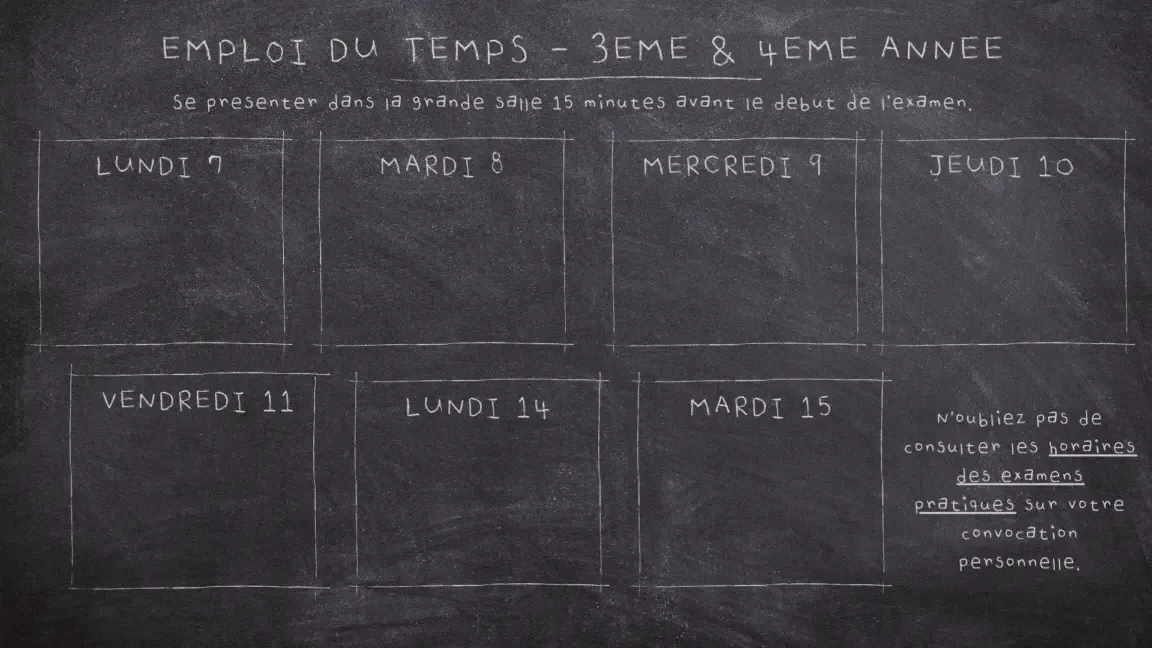 EMPLOI DU TEMPS - 3EME & 4EME ANNEE
Se presenter dans la grande salle 15 minutes avant le debut de l'examen.
LUNDI 7
MARDI 8
MERCREDI 9
JEUDI 10
VENDREDI 11
LUNDI 14
MARDI 15
N'oubliez pas de
consulter les horaires
des examens
pratiques sur votre
convocation
personnelle.